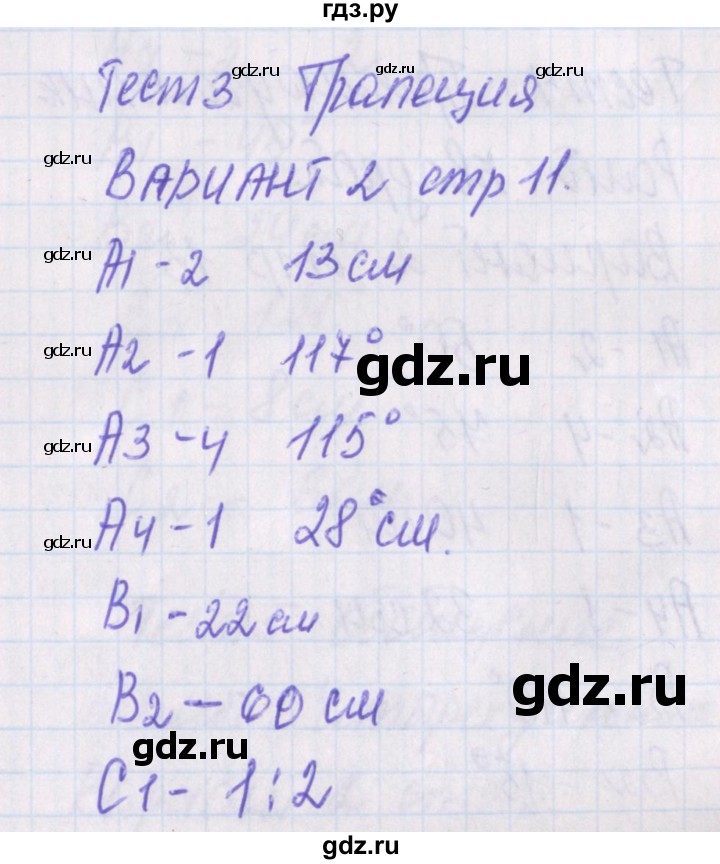 гдз.ру
Тест 3 Трапеция
gdz.ru gdz.ru gdz.ru
gdz.ru
ВАРИАНТ 2 стр 11.
gdz.ru
А1 - 2 13 см
gdz.ru
А2 - 1 117°
gdz.ru
gdz.ru
А3 - 4 115°
gdz.ru
А4 - 1 28° см.
В1 - 22 см
gdz.ru
В2 - 60 см
gdz.ru
С1 - 1 : 2
gdz.ru